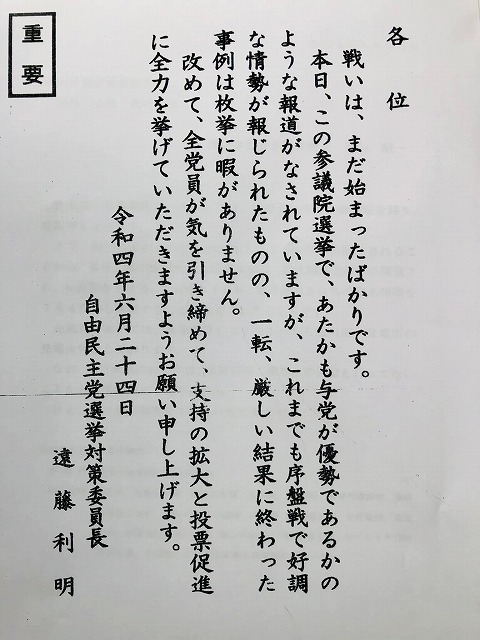 重要
各位
戦いは、まだ始まったばかりです。
本日、この参議院選挙で、あたかも与党が優勢であるかの
ような報道がなされていますが、これまでも序盤戦で好調
な情勢が報じられたものの、一転、厳しい結果に終わった
事例は枚挙に暇がありません。
改めて、全党員が気を引き締めて、支持の拡大と投票促進
に全力を挙げていただきますようお願い申し上げます。
令和四年六月二十四日
自由民主党選挙対策委員長
遠藤利明